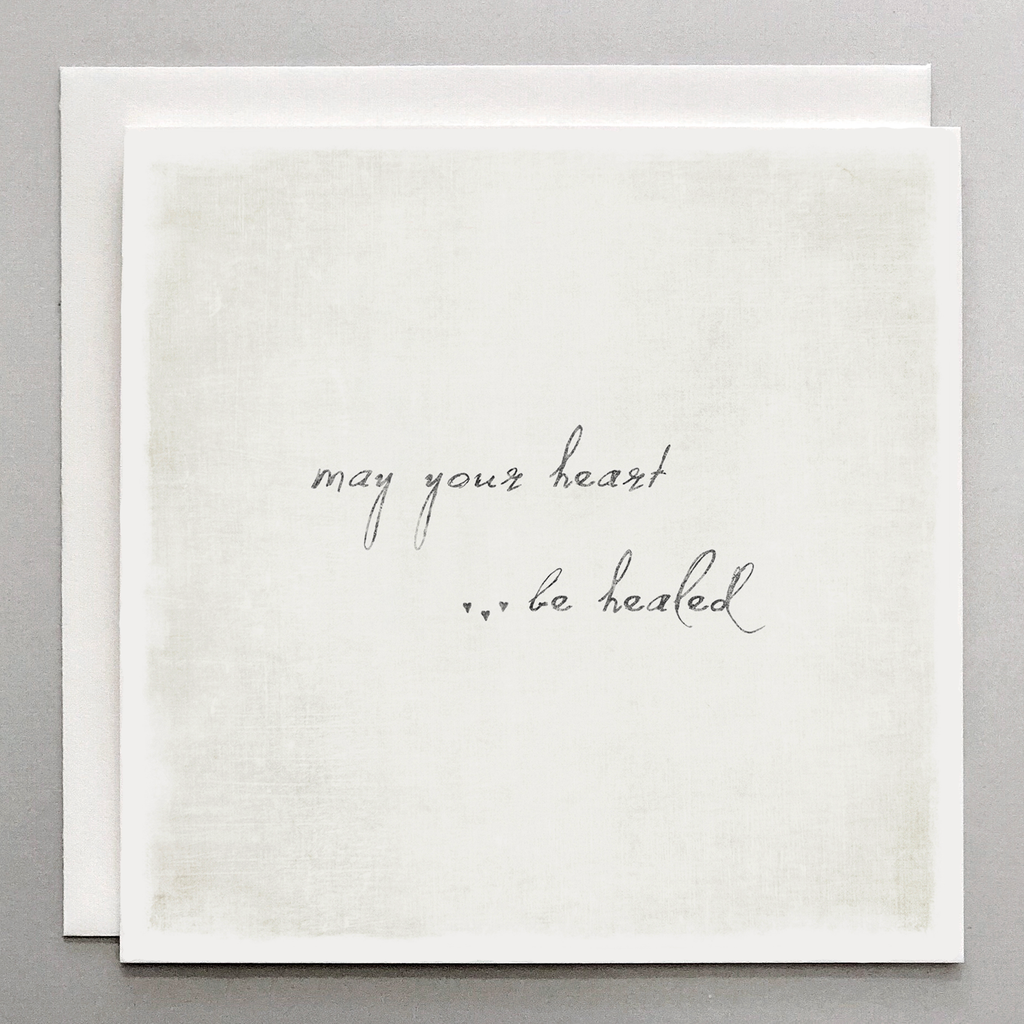 may your heart
♥♥♥ be healed